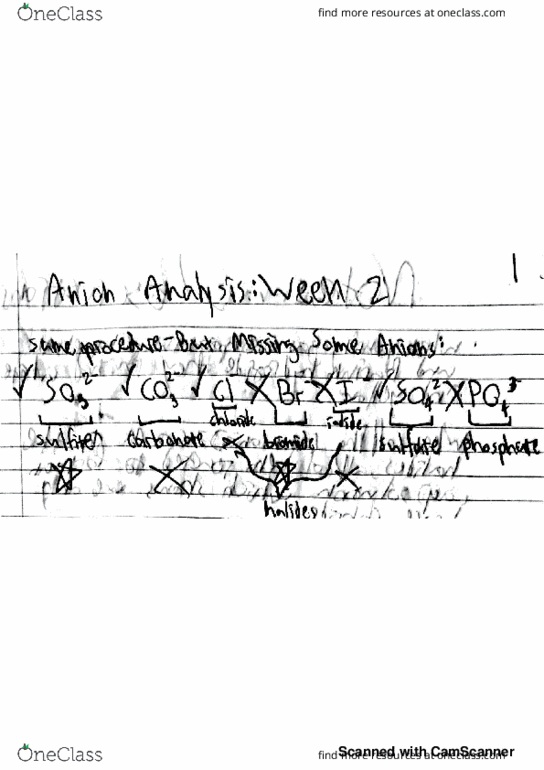 OneClass
find more resources at oneclass.com
1
Anion Analysis: Week 2
same procedure - But Missing Some Anions:
✓ SO₃²⁻ ✓ CO₃²⁻ ✓ Cl⁻ X Br⁻ X I⁻ ✓ SO₄²⁻ X PO₄³⁻
chloride iodide
sulfite carbonate bromide sulfate phosphate
halides
OneClass
find more resources at oneclass.com
Scanned with CamScanner